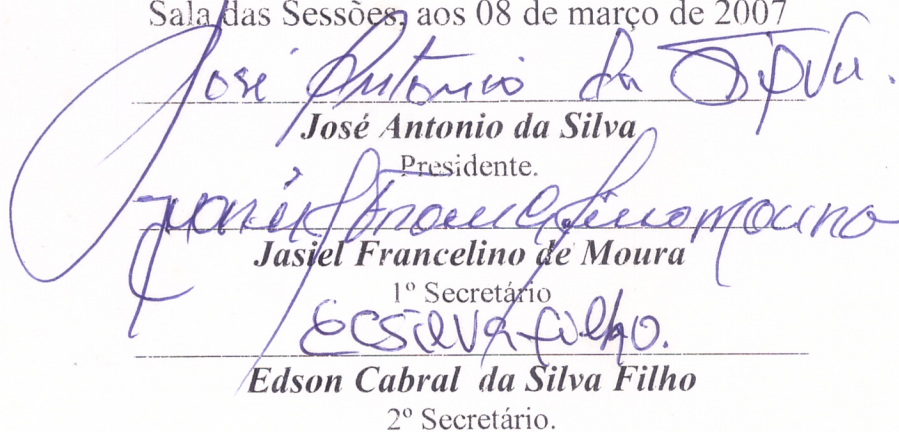 Sala das Sessões, aos 08 de março de 2007
José Antonio da Silva.
José Antonio da Silva
Presidente.
Jasiel Francelino Moura
Jasiel Francelino de Moura
1º Secretário
ECSilva filho.
Edson Cabral da Silva Filho
2º Secretário.